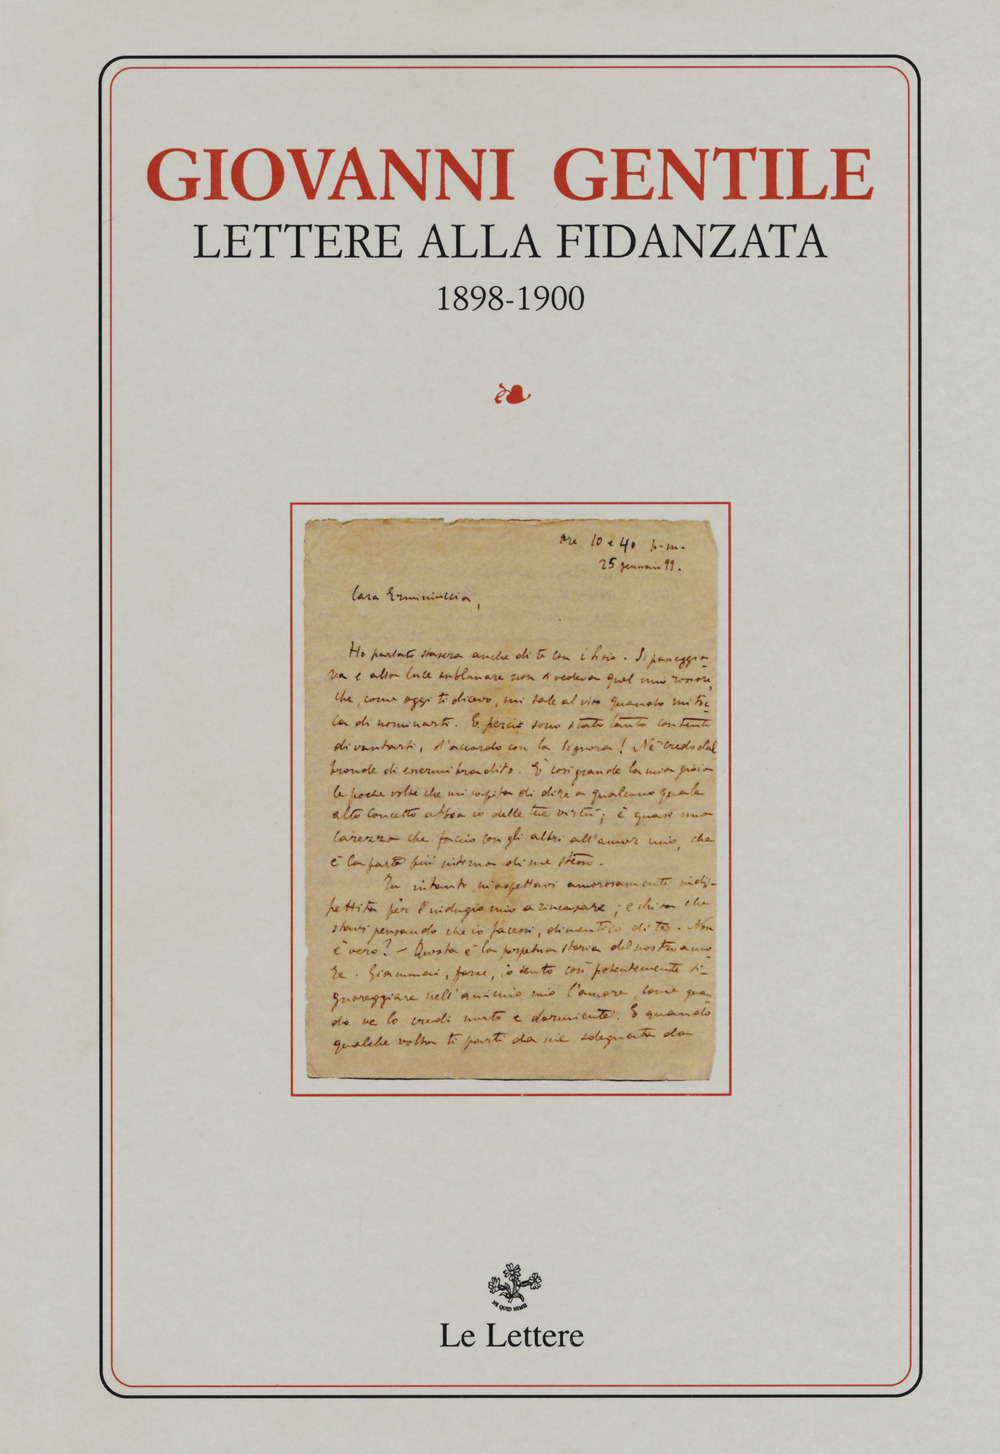 GIOVANNI GENTILE
LETTERE ALLA FIDANZATA
1898-1900
Ore 10 e 40 p.m.
25 gennaio 99.
Cara Erminiuccia,
Ho parlato stasera anche di te con . Si passeggia-
va e alla luce sublunare non si vedeva quel mio rossore,
che, come oggi ti dicevo, mi sale al viso quando mi toc-
ca di nominarti. E perciò sono stato tanto contento
di vantarti, d'accordo con la Signora! Nè credo dal
tronde di essermi tradito. È così grande la mia gioia
le poche volte che mi capita di dire a qualcuno quale
alto concetto abbia io delle tue virtù; è quasi una
carezza che faccio con gli altri all'amor mio, che
è la parte più intima di me stesso.
Tu intanto m'aspettavi amorosamente indi-
spettita per l'indugio mio a rincasare; e chi sa che
stavi pensando che io facessi, dimentico di te. Non
è vero? – Questa è la perpetua storia del nostro amo
re. Giammai, forse, io sento così potentemente si-
gnoreggiare nell'animo mio l'amore, come quan
do ve lo credi muto e dormiente. E quando
qualche volta ti parti da me sdegnata da
NE QUID NIMIS
Le Lettere